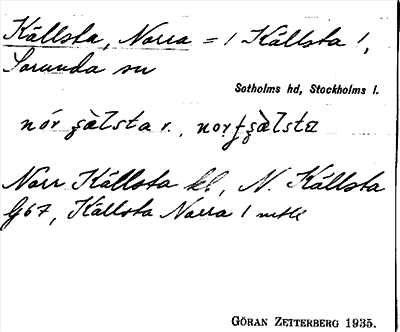 Källsta, Norra = / Källsta /,
Sorunda sn
Sotholms hd, Stockholms l.
nór sàlsta r. , nor sàlsta
Norr Källsta kl, N. Källsta
G67, Källsta Norra /
GÖRAN ZETTERBERG 1935.